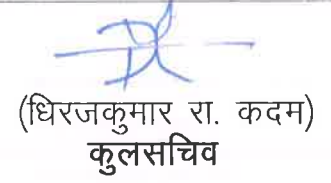 (धिरजकुमार रा. कदम)
कुलसचिव